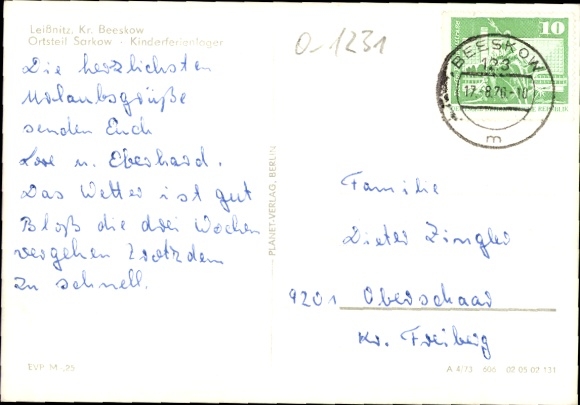 Leißnitz, Kr. Beeskow
Ortsteil Sarkow - Kinderferienlager
O-1231
Die herzlichsten
Urlaubsgrüße
senden Euch
Lore u. Eberhard.
Das Wetter ist gut
Bloß die drei Wochen
vergehen trotzdem
zu schnell.
EVP M -,25
PLANET-VERLAG, BERLIN
10
BEESKOW
123
17.-8.76.-10
m
Familie
Dieter Zingler
9201 Oberschaar
Kr. Freiberg
A 4/73 606 02 05 02 131